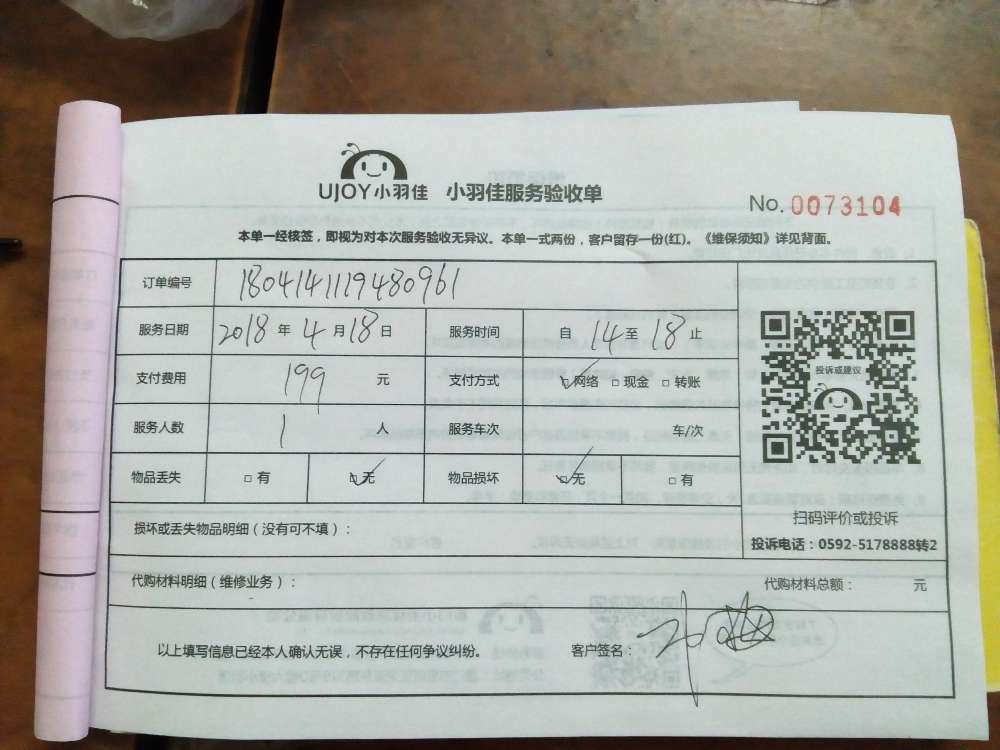 UJOY小羽佳 小羽佳服务验收单
No. 0073104
本单一经核签，即视为对本次服务验收无异议。本单一式两份，客户留存一份(红)。《维保须知》详见背面。
订单编号 1804141119480961
服务日期 2018 年 4 月 18 日 服务时间 自 14 至 18 止
支付费用 199 元 支付方式 ☑网络 □现金 □转账
服务人数 1 人 服务车次 车/次
物品丢失 □有 ☑无 物品损坏 ☑无 □有
投诉或建议
扫码评价或投诉
投诉电话：0592-5178888转2
损坏或丢失物品明细（没有可不填）：
代购材料明细（维修业务）： 代购材料总额： 元
以上填写信息已经本人确认无误，不存在任何争议纠纷。 客户签名：